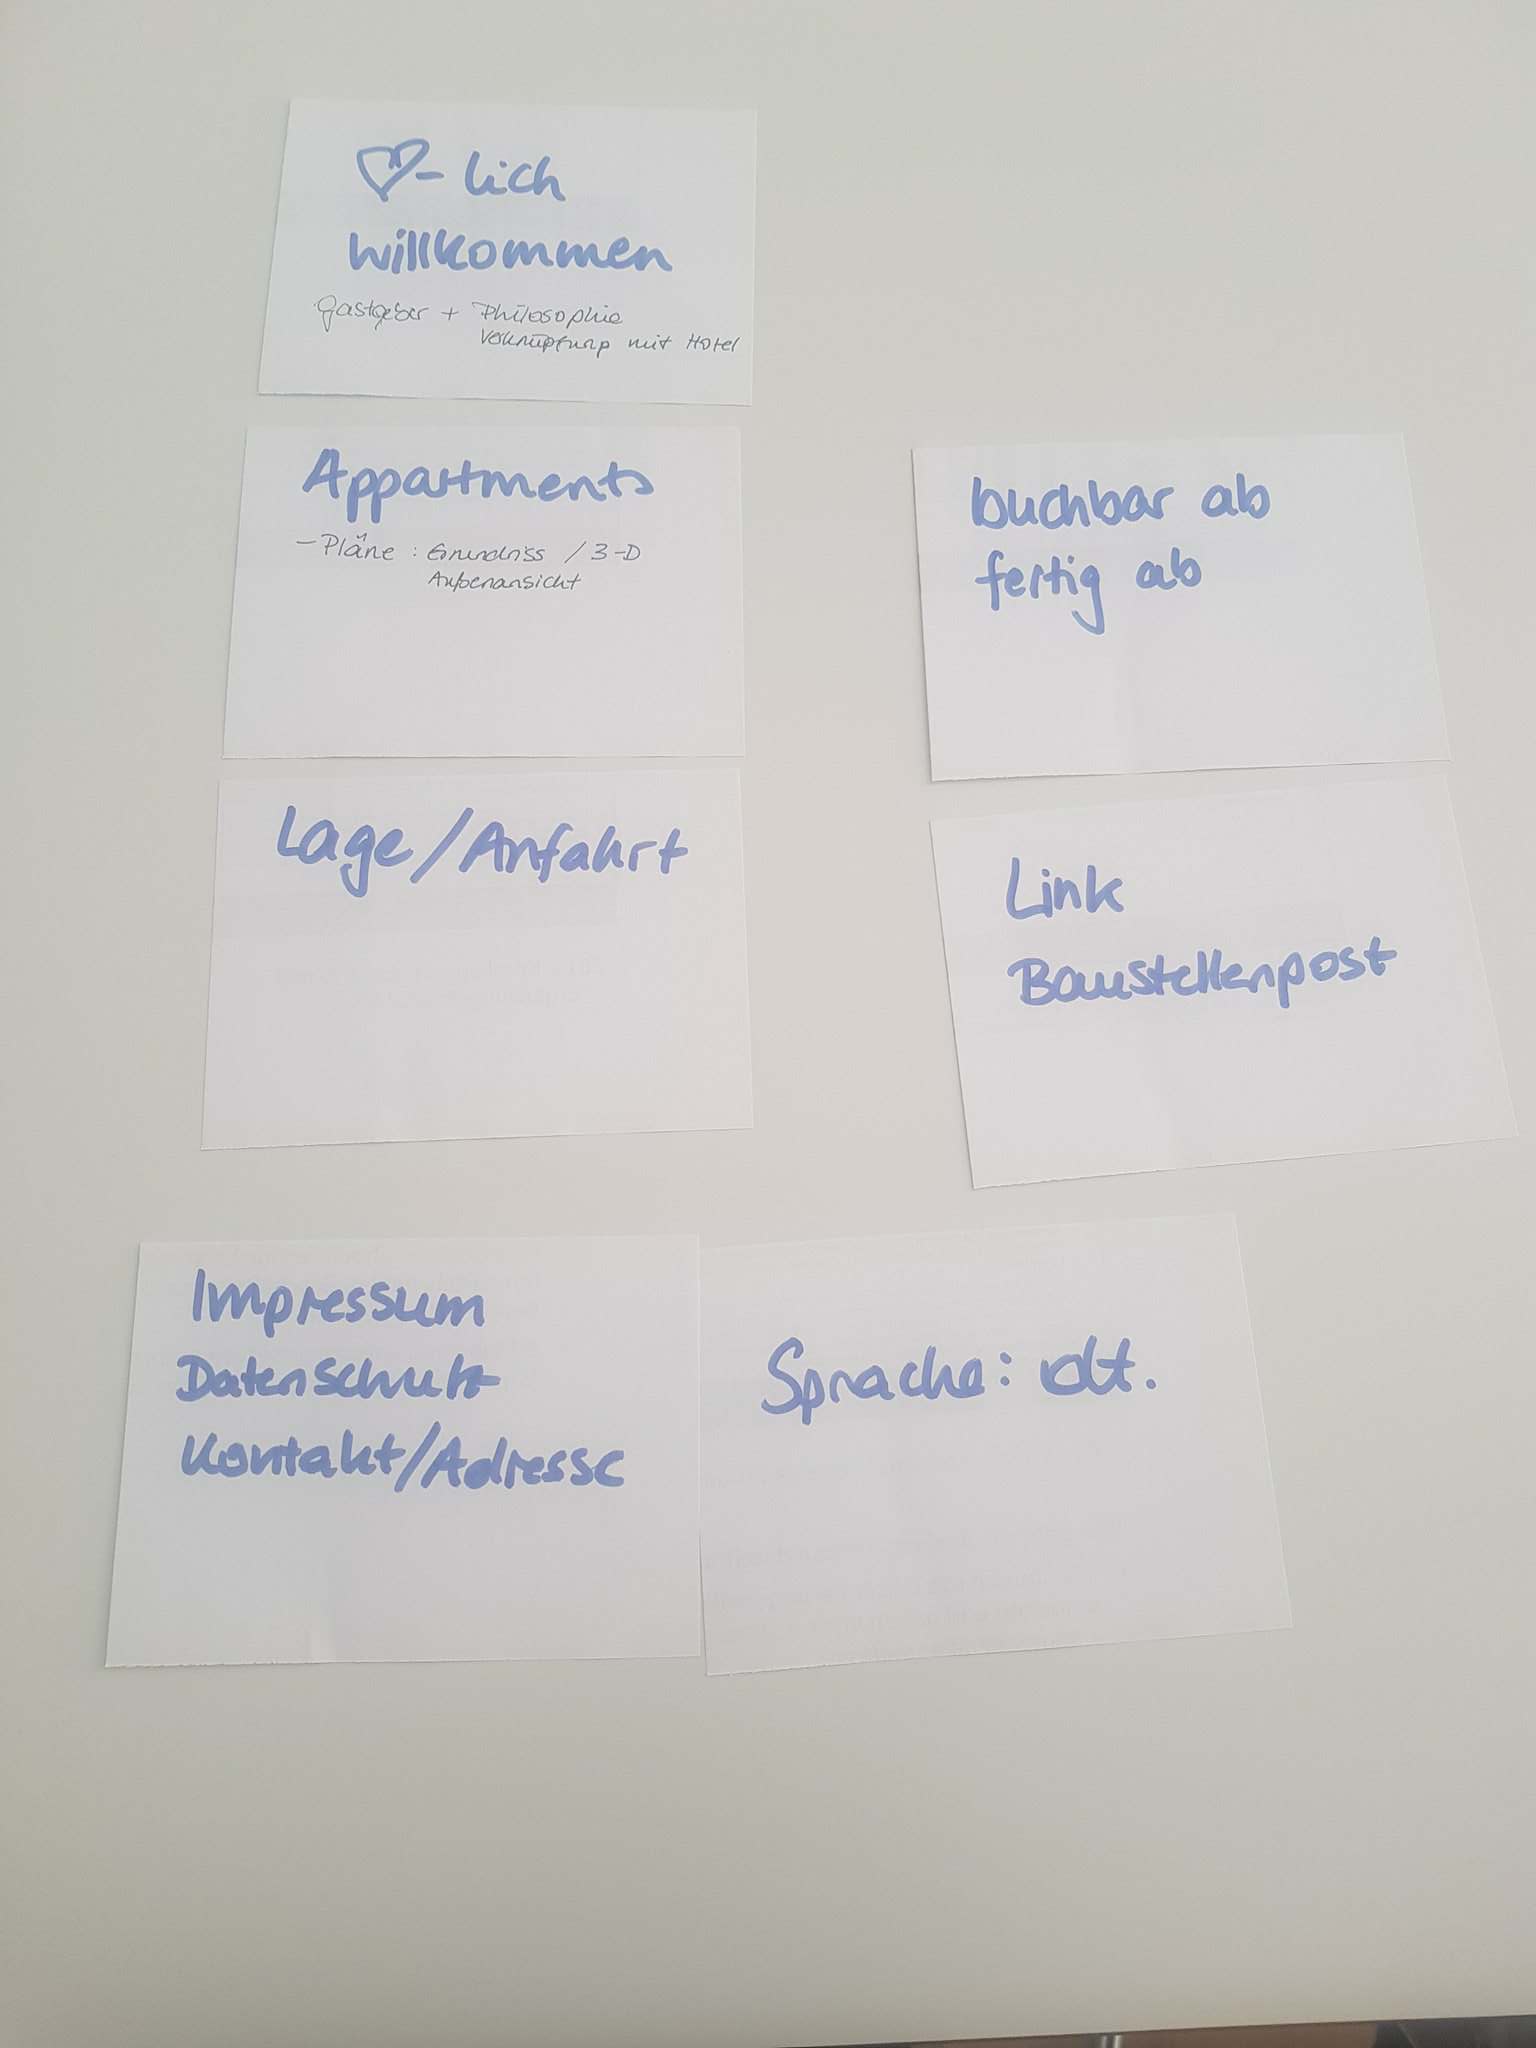 ♡-lich
willkommen
Gastgeber + Philosophie
Verknüpfung mit Hotel
Appartments
- Pläne : Grundriss / 3-D
Außenansicht
buchbar ab
fertig ab
Lage/Anfahrt
Link
Baustellenpost
Impressum
Datenschutz
Kontakt/Adresse
Sprache: dt.